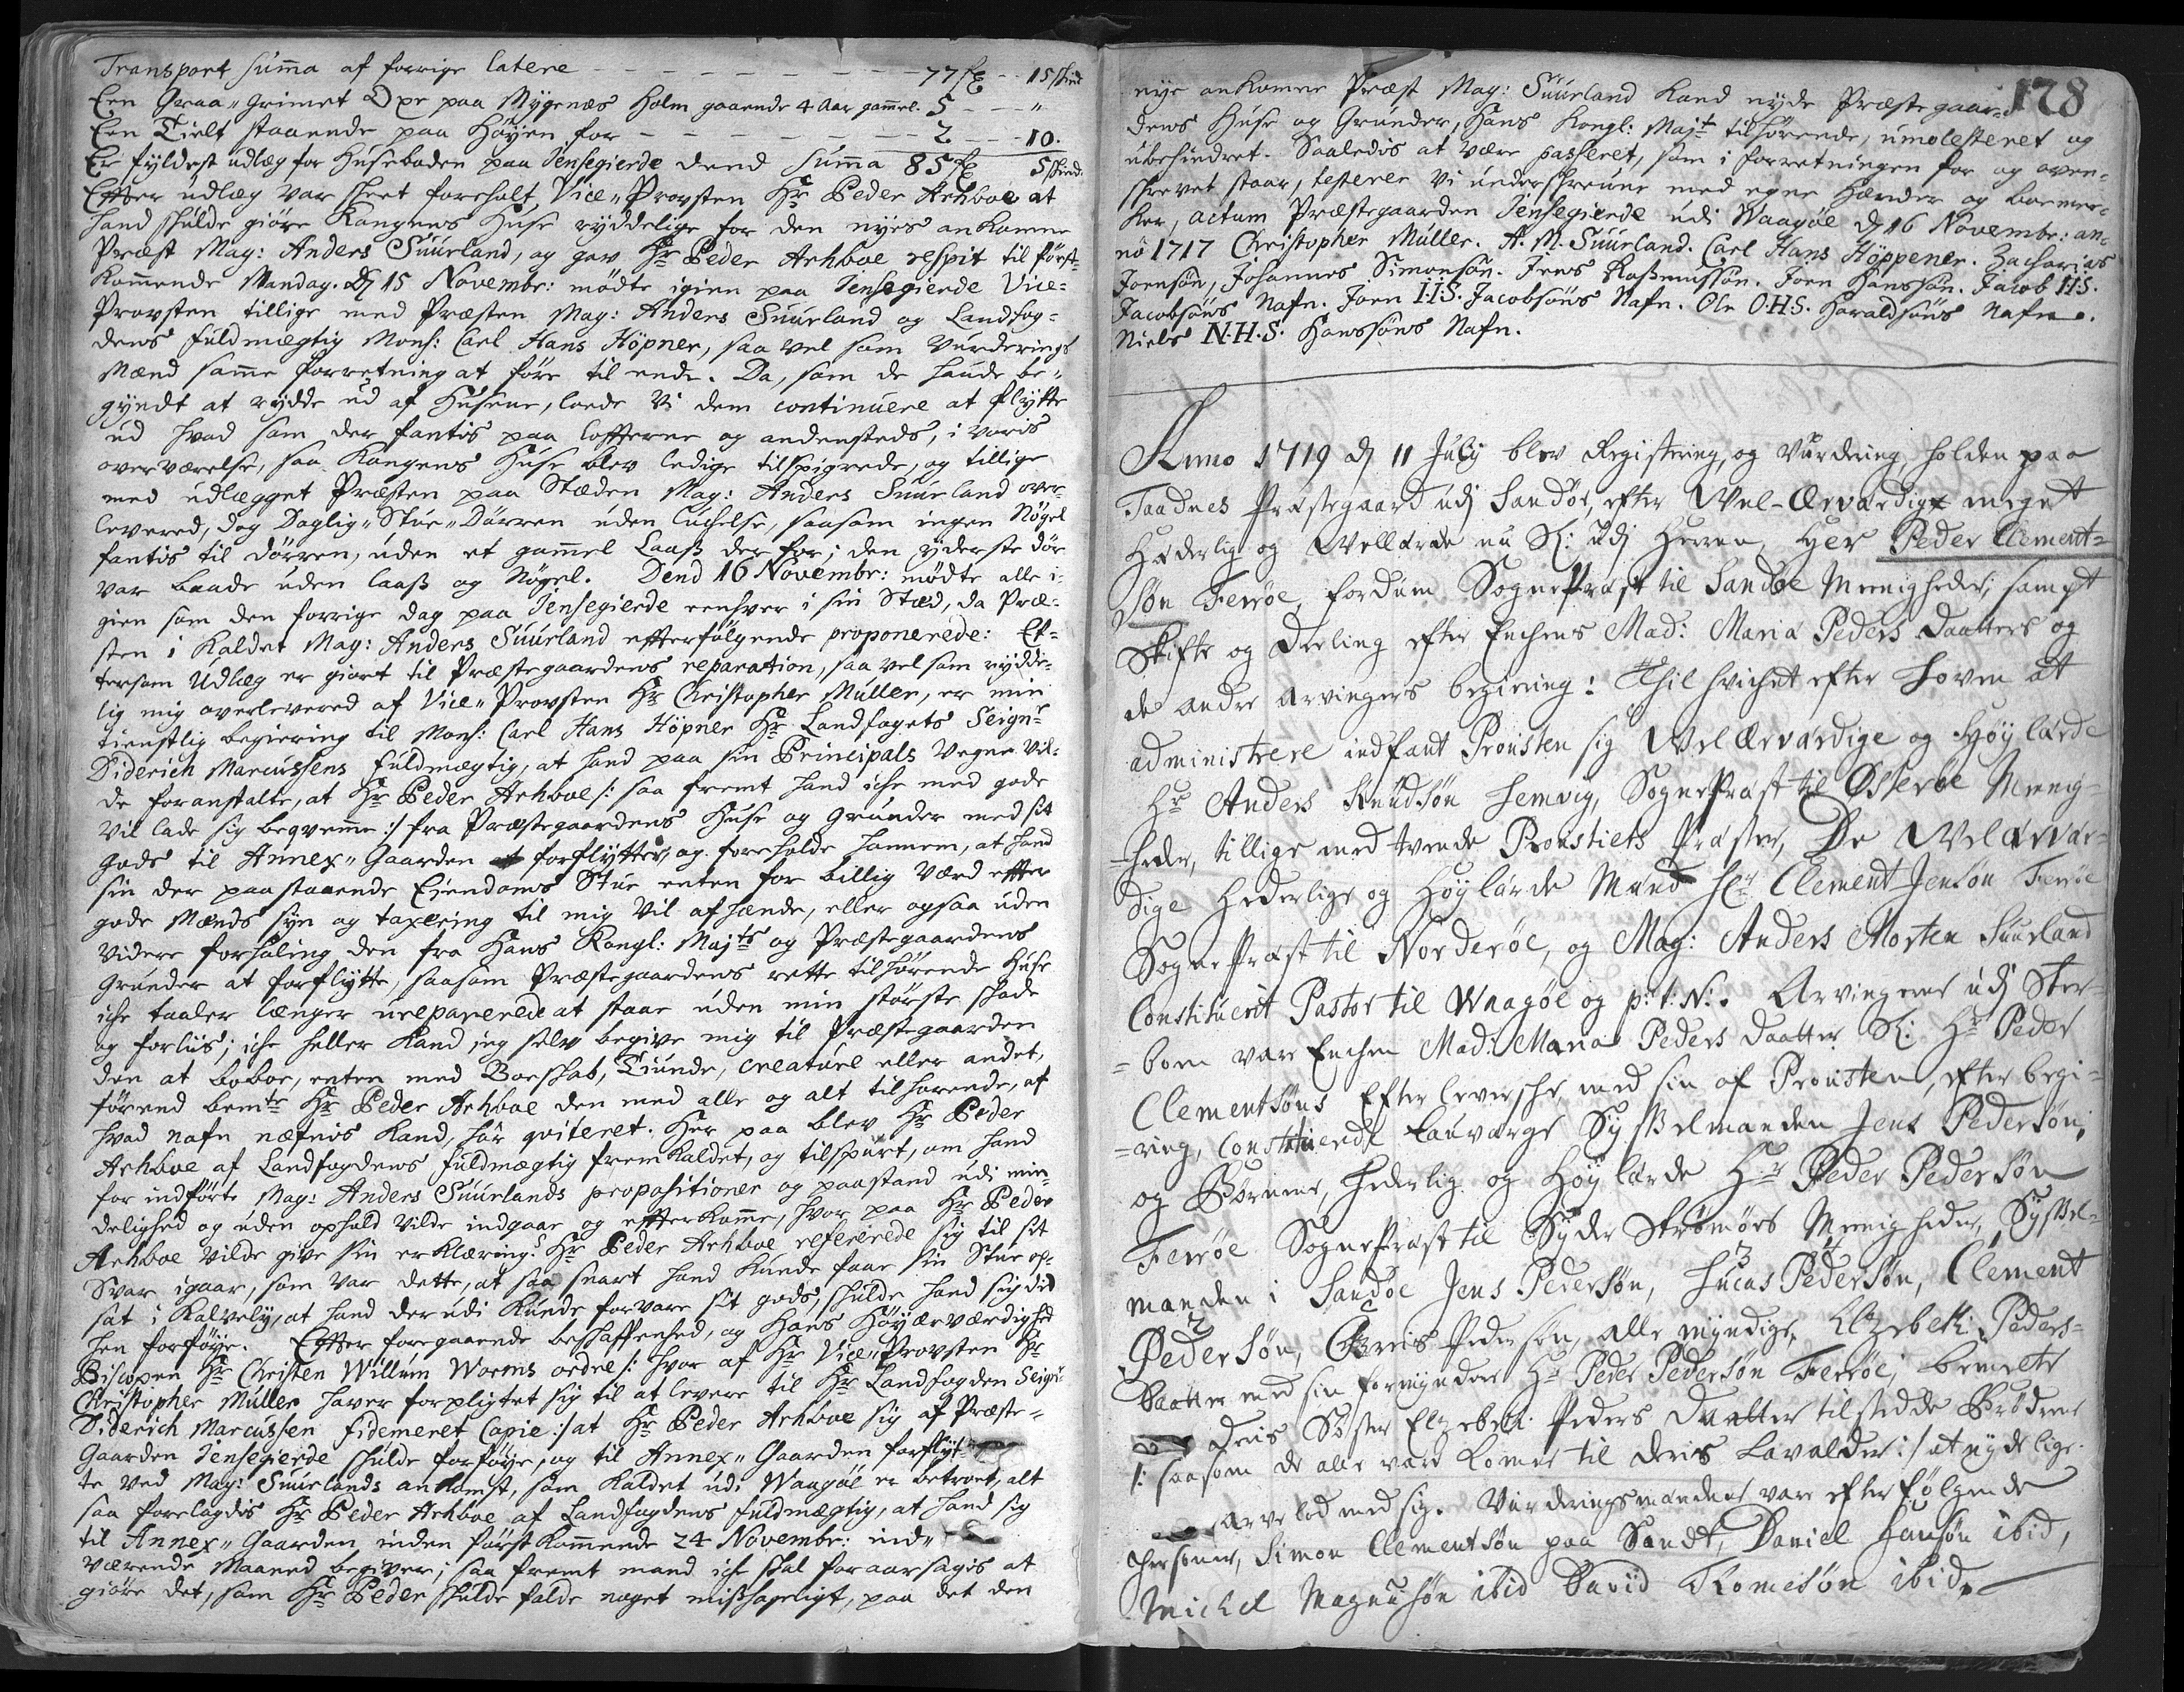 Transport Summa af forrige latere - - - - - - - - 77 fl - - 15 skind
Een Graa-Grimet Oxe paa Mygenæs Holm gaaende 4 Aar gammel. 5 - - - "
Een Tielt staaende paa Høyen for - - - - - - - - 2 - - - 10.
Er fyldest udlæg for Huseboden paa Jensegierde dend Summa 85 fl 5 skind.
Effter udlæg var skeet foreholt Vice-Provsten Hr Peder Arhboe at
hand skulde giøre Kongens Huse ryddelige for den nyes ankomne
Præst Mag: Anders Suurland, og gav Hr Peder Arhboe respit til først-
kommende Mandag. D 15 Novembr: mødte igien paa Jensegierde Vice-
Provsten tillige med Præsten Mag: Anders Suurland og Landfog-
dens fuldmægtig Mons: Carl Hans Höpner, saa vel som Vurderings
Mænd samme forretning at føre til ende. Da, som de hafde be-
gyndt at rydde ud af Husene, loede Vi dem continuere at flytte
ud hvad som der fantis paa lofterne og andensteds, i voris
overværelse, saa Kongens Huse blev ledige tilspigrede, og tillige
med udlægget Præsten paa Stæden Mag: Anders Suurland over-
levered, dog Daglig-Stue-Dørren uden luchelse, saasom ingen Nøgel
fantis til dørren, uden et gammel Laaß der for; den yderste dør
var baade uden laaß og Nøgel. Dend 16 Novembr: mødte alle i-
gien som den forrige dag paa Jensegierde eenhver i sin Stæd, da Præ-
sten i Kaldet Mag: Anders Suurland effterfølgende proponerede: Ef-
tersom Udlæg er giort til Præstegaardens reparation, saa vel som rydde-
lig mig overlevered af Vice-Provsten Hr Christopher Müller, er min
tienstlig begiering til Mons: Carl Hans Höpner Hr Landfogets Seignr
Diderich Marcussens fuldmægtig, at hand paa sin Principals Vegne vil-
de foranstalte, at Hr Peder Arhboe /: saa fremt hand iche med gode
vil lade sig beqvemme :/ fra Præstegaardens Huse og Grunder med sit
gods til Annex-Gaarden forflytter, og foreholde hannem, at hand
sin der paastaaende Eiendoms Stue enten for billig Værd effter
gode Mænds syn og taxering til mig Vil afhænde, eller ogsaa uden
videre forhaling den fra Hans Kongl: Majts og Præstegaardens
Grunder at forflytte, saasom Præstegaardens rette tilhørende Huse
iche taaler længer ureparerede at staae uden min største skade
og forliis; iche heller kand jeg selv begive mig til Præstegaarden
den at beboe, enten med Boeskab, Tiunde, creature eller andet,
førend bemte Hr Peder Arhboe den med alle og alt tilhørende, af
hvad nafn nefnis kand, har qviteret. Her paa blev Hr Peder
Arhboe af Landfogdens fuldmægtig fremkaldet, og tilspurt, om hand
for indførte Mag: Anders Suurlands propositioner og paastand udi min-
delighed og uden ophold vilde indgaae og effterkomme, hvor paa Hr Peder
Arhboe vilde give sin erklæring? Hr Peder Arhboe refererede sig til sit
Svar igaar, som var dette, at saa snart hand kunde faae sin Stue op-
sat i Kalvely, at hand derudi kunde forvare sit gods, skulde hand sig did
hen forføye. Effter foregaaende beskaffenhed, og Hans Höyærværdighed
Biscopen Hr Christen Willum Worms ordre /: hvor af Hr Vice-Provsten Hr
Christopher Müller haver forpligtet sig til at levere til Hr Landfogden Seignr
Diderich Marcussen fidemeret Copie :/ at Hr Peder Arhboe sig af Præste-
Gaarden Jensegierde skulde forføye, og til Annex-Gaarden forflyt-
te ved Mag: Suurlands ankomst, som Kaldet udi Waagøe er betroet, alt
saa forelagdis Hr Peder Arhboe af Landfogdens fuldmægtig, at hand sig
til Annex-Gaarden inden først kommende 24 Novembr: ind-
værende Maaned begiver; saa fremt mand iche skal foraarsagis at
giøre det, som Hr Peder skulde falde noget mißhageligt, paa det den
178
nye ankomne Præst Mag: Suurland kand nyde Præstegaar-
dens Huse og Grunder, Hans Kongl: Majt tilhørende, umolesteret og
ubehindret. Saaledis at være passeret, som i forretningen for og oven-
skrevet staar, testerer Vi underskreevne med egne Hænder og boemer-
ker, actum Præstegaarden Jensegierde udi Waagøe D 16 Novembr: an-
no 1717 Christopher Müller. A. M. Suurland. Carl Hans Höppener. Zacharias
Joensøn, Johannes Simonsøn. Jens Raßmussøn. Joen Hanssøn. Jacob I.I.S.
Jacobsøns Nafn. Joen I.I.S. Jacobsøns Nafn. Ole O.H.S. Haraldsøns Nafn.
Niels N.H.S. Hanssøns Nafn.
Anno 1719 D 11 July blev Registering, og Vurdering, holden paa
Taadnes Præstegaard udj Sandøe, efter Wel-Ærværdige meget
Hæderlig og Wellærde nu Sl: udj Herren, Her Peder Clement-
søn Ferrøe, fordum Sogne Præst til Sandøe Menigheder, sampt
Skifte og deeling efter Enchens Mad: Maria Peders Daatters og
de andre Arvingers begiering: Thil hvilchet efter Loven at
administrere indfant Provsten sig WelÆrværdige og Høylærde
Hr Anders Knudsøn Hemvig, Sogne Præst til Østerøe Menig-
heder, tillige med tvende Provstiets Præster, De WelÆrvær-
dige Hæderlige og Høylærde Mænd Hr Clement Jensøn Ferrøe
Sogne Præst til Norderøe, og Mag: Anders Morten Suurland
Constituerit Pastor til Waagøe og p: t: N:. Arvingerne udj Ster-
-boen var Enchen Mad: Maria Peders Daatter Sl: Hr Peder
Clementsøns Efterleversche, med sin af Provsten, efter begie-
-ring, Constituerede Lauværge Sysselmanden Jens Pedersøn,
og Børnene, Hederlig og Høylærde Hr Peder Pedersøn
Ferrøe Sogne Præst til Sydre Strømøes Menigheder, Syssel-
manden i Sandøe Jens Pedersøn, Lucas Pedersøn, Clement
Pedersøn, Chreis Pedersøn, alle myndige, Elzebeth Peders-
Daatter med sin formynder Hr Peder Pedersøn Ferrøe, bemelte
deris Søster Elzebeth Peders Daatter tilstedde Brødrene
/: saasom de alle vare komne til deris Lavalder :/ at nyde lige
Arvelod med sig. Vurderingsmændene vare efterfølgende
Personer, Simon Clementsøn paa Sandt, Daniel Jansøn ibid,
Michel Magnusøn ibid David Romesøn ibid.